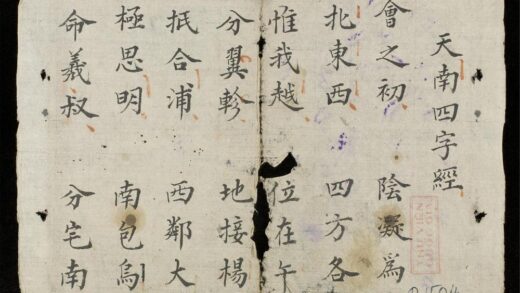 天南四字經
會之初 陰凝爲
北東西 四方各
惟我越 位在午
分翼軫 地接楊
抵合浦 西鄰大
極思明 南包烏
命羲叔 分宅南